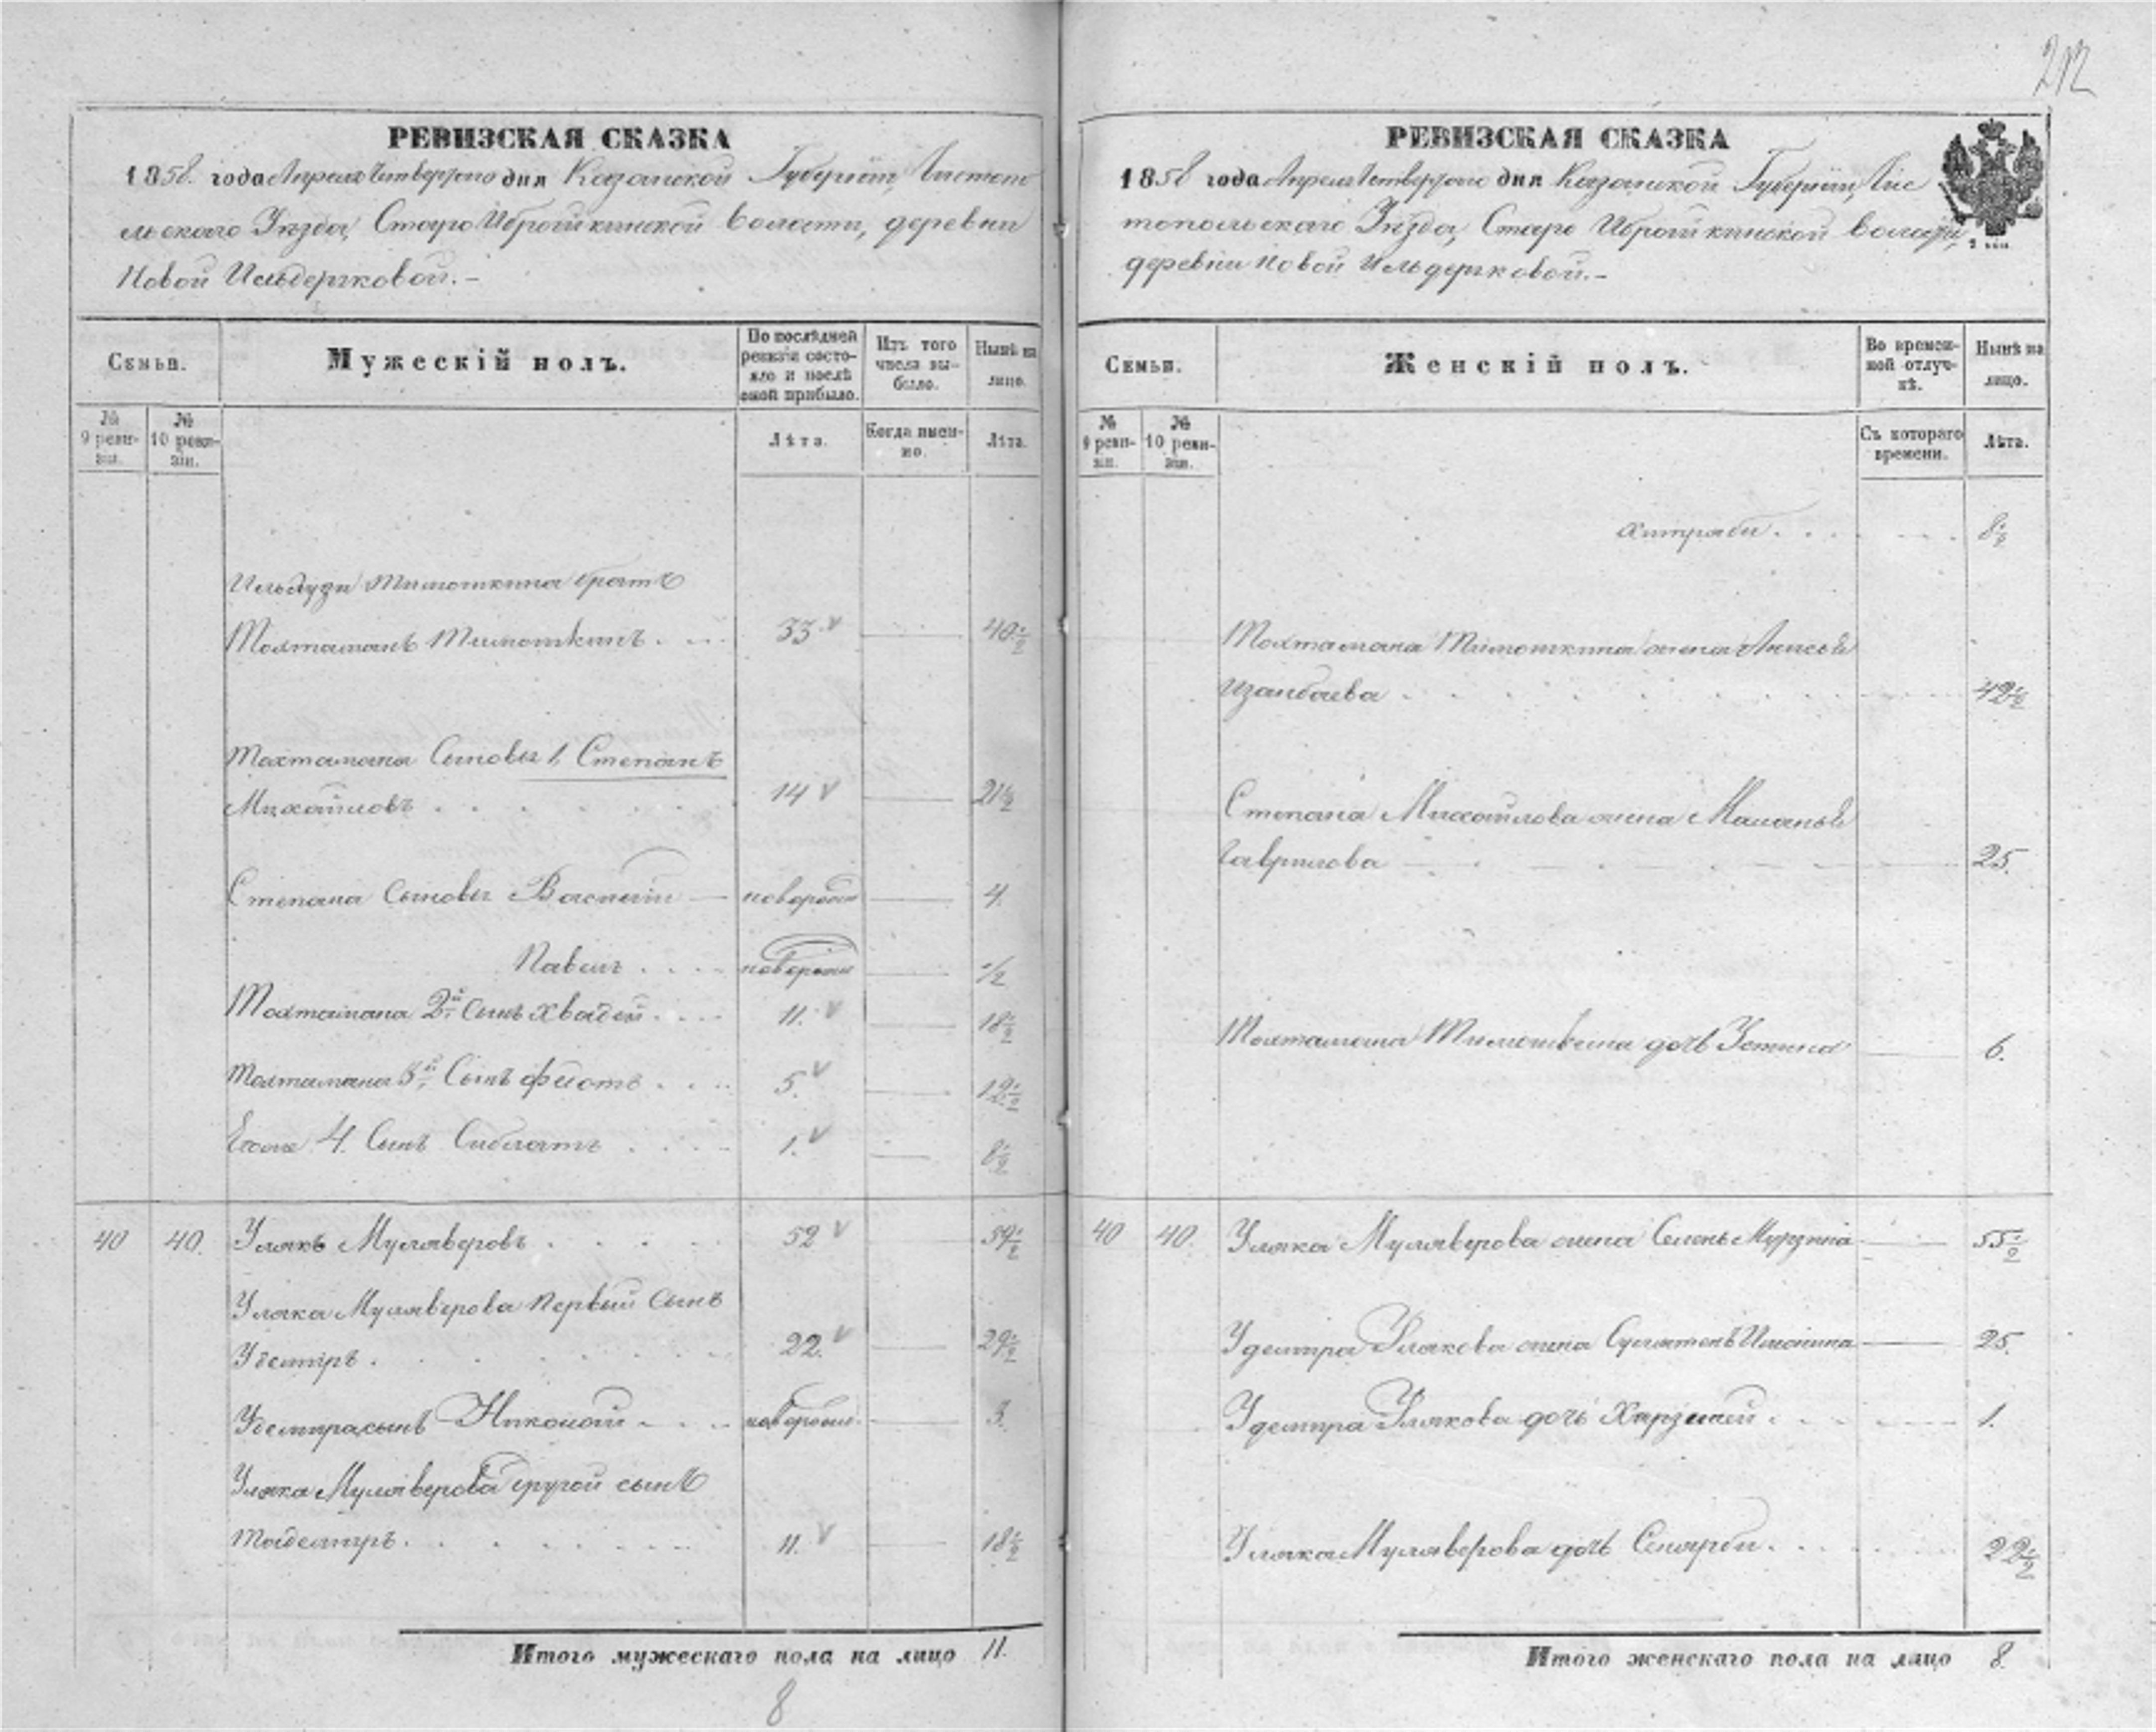 212
РЕВИЗСКАЯ СКАЗКА
1858. года Апреля Четвертого дня Казанской Губернии, Чистопо
льского Уезда, Старо Ибрайкинской Волости, деревни
Новой Ильдеряковой.-
Семьи.
Мужескій полъ.
По послѣдней ревизіи состояло и послѣ оной прибыло.
Изъ того числа выбыло.
Нынѣ на лицо.
№ 9 ревизіи.
№ 10 ревизіи.
Лѣта.
Когда именно.
Лѣта.
Тимошкина братъ
Тохтаманъ Тимошкинъ. 33. 40 1/2
Тохтамана Сыновья 1, Степанъ
Михайловъ 14 21 1/2
Степана Сыновья Василій — новорожд — 4.
Павелъ новорожд — 1/2
Тохтамана 2й Сынъ Хвадей 11. — 18 1/2
Тохтамана 3й Сынъ Фиотъ 5. — 12 1/2
Его же 4. Сынъ 1. — 8 1/2
40 40. Улякъ Муляверовъ 52 59 1/2
Уляка Муляверова первый сынъ
Удемиръ. 22. — 29 1/2
Удемира сынъ Николай новорожд. — 3.
Уляка Муляверова другой сынъ
Тойдемиръ. 11. — 18 1/2
Итого мужескаго пола на лицо 11.
8
РЕВИЗСКАЯ СКАЗКА
1858 года Апреля Четвертого дня Казанской Губернии, Чис
топольскаго Уезда, Старо Ибрайкинской Волости,
деревни Новой Ильдеряковой.-
Семьи.
Женскій полъ.
Во временной отлучкѣ.
Нынѣ на лицо.
№ 9 ревизіи.
№ 10 ревизіи.
Съ котораго времени.
Лѣта.
8 1/2
Тохтамана Тимошкина жена Анисья
Изанбаева 42 1/2
Степана Михайлова жена Маланья
Гаврилова 25.
Тохтамана Тимошкина дочь Устинья 6.
40 40. Уляка Муляверова жена 55 1/2
Удемира Улякова жена 25.
Удемира Улякова дочь 1.
Уляка Муляверова дочь Сенарби. 22 1/2
Итого женскаго пола на лицо 8.